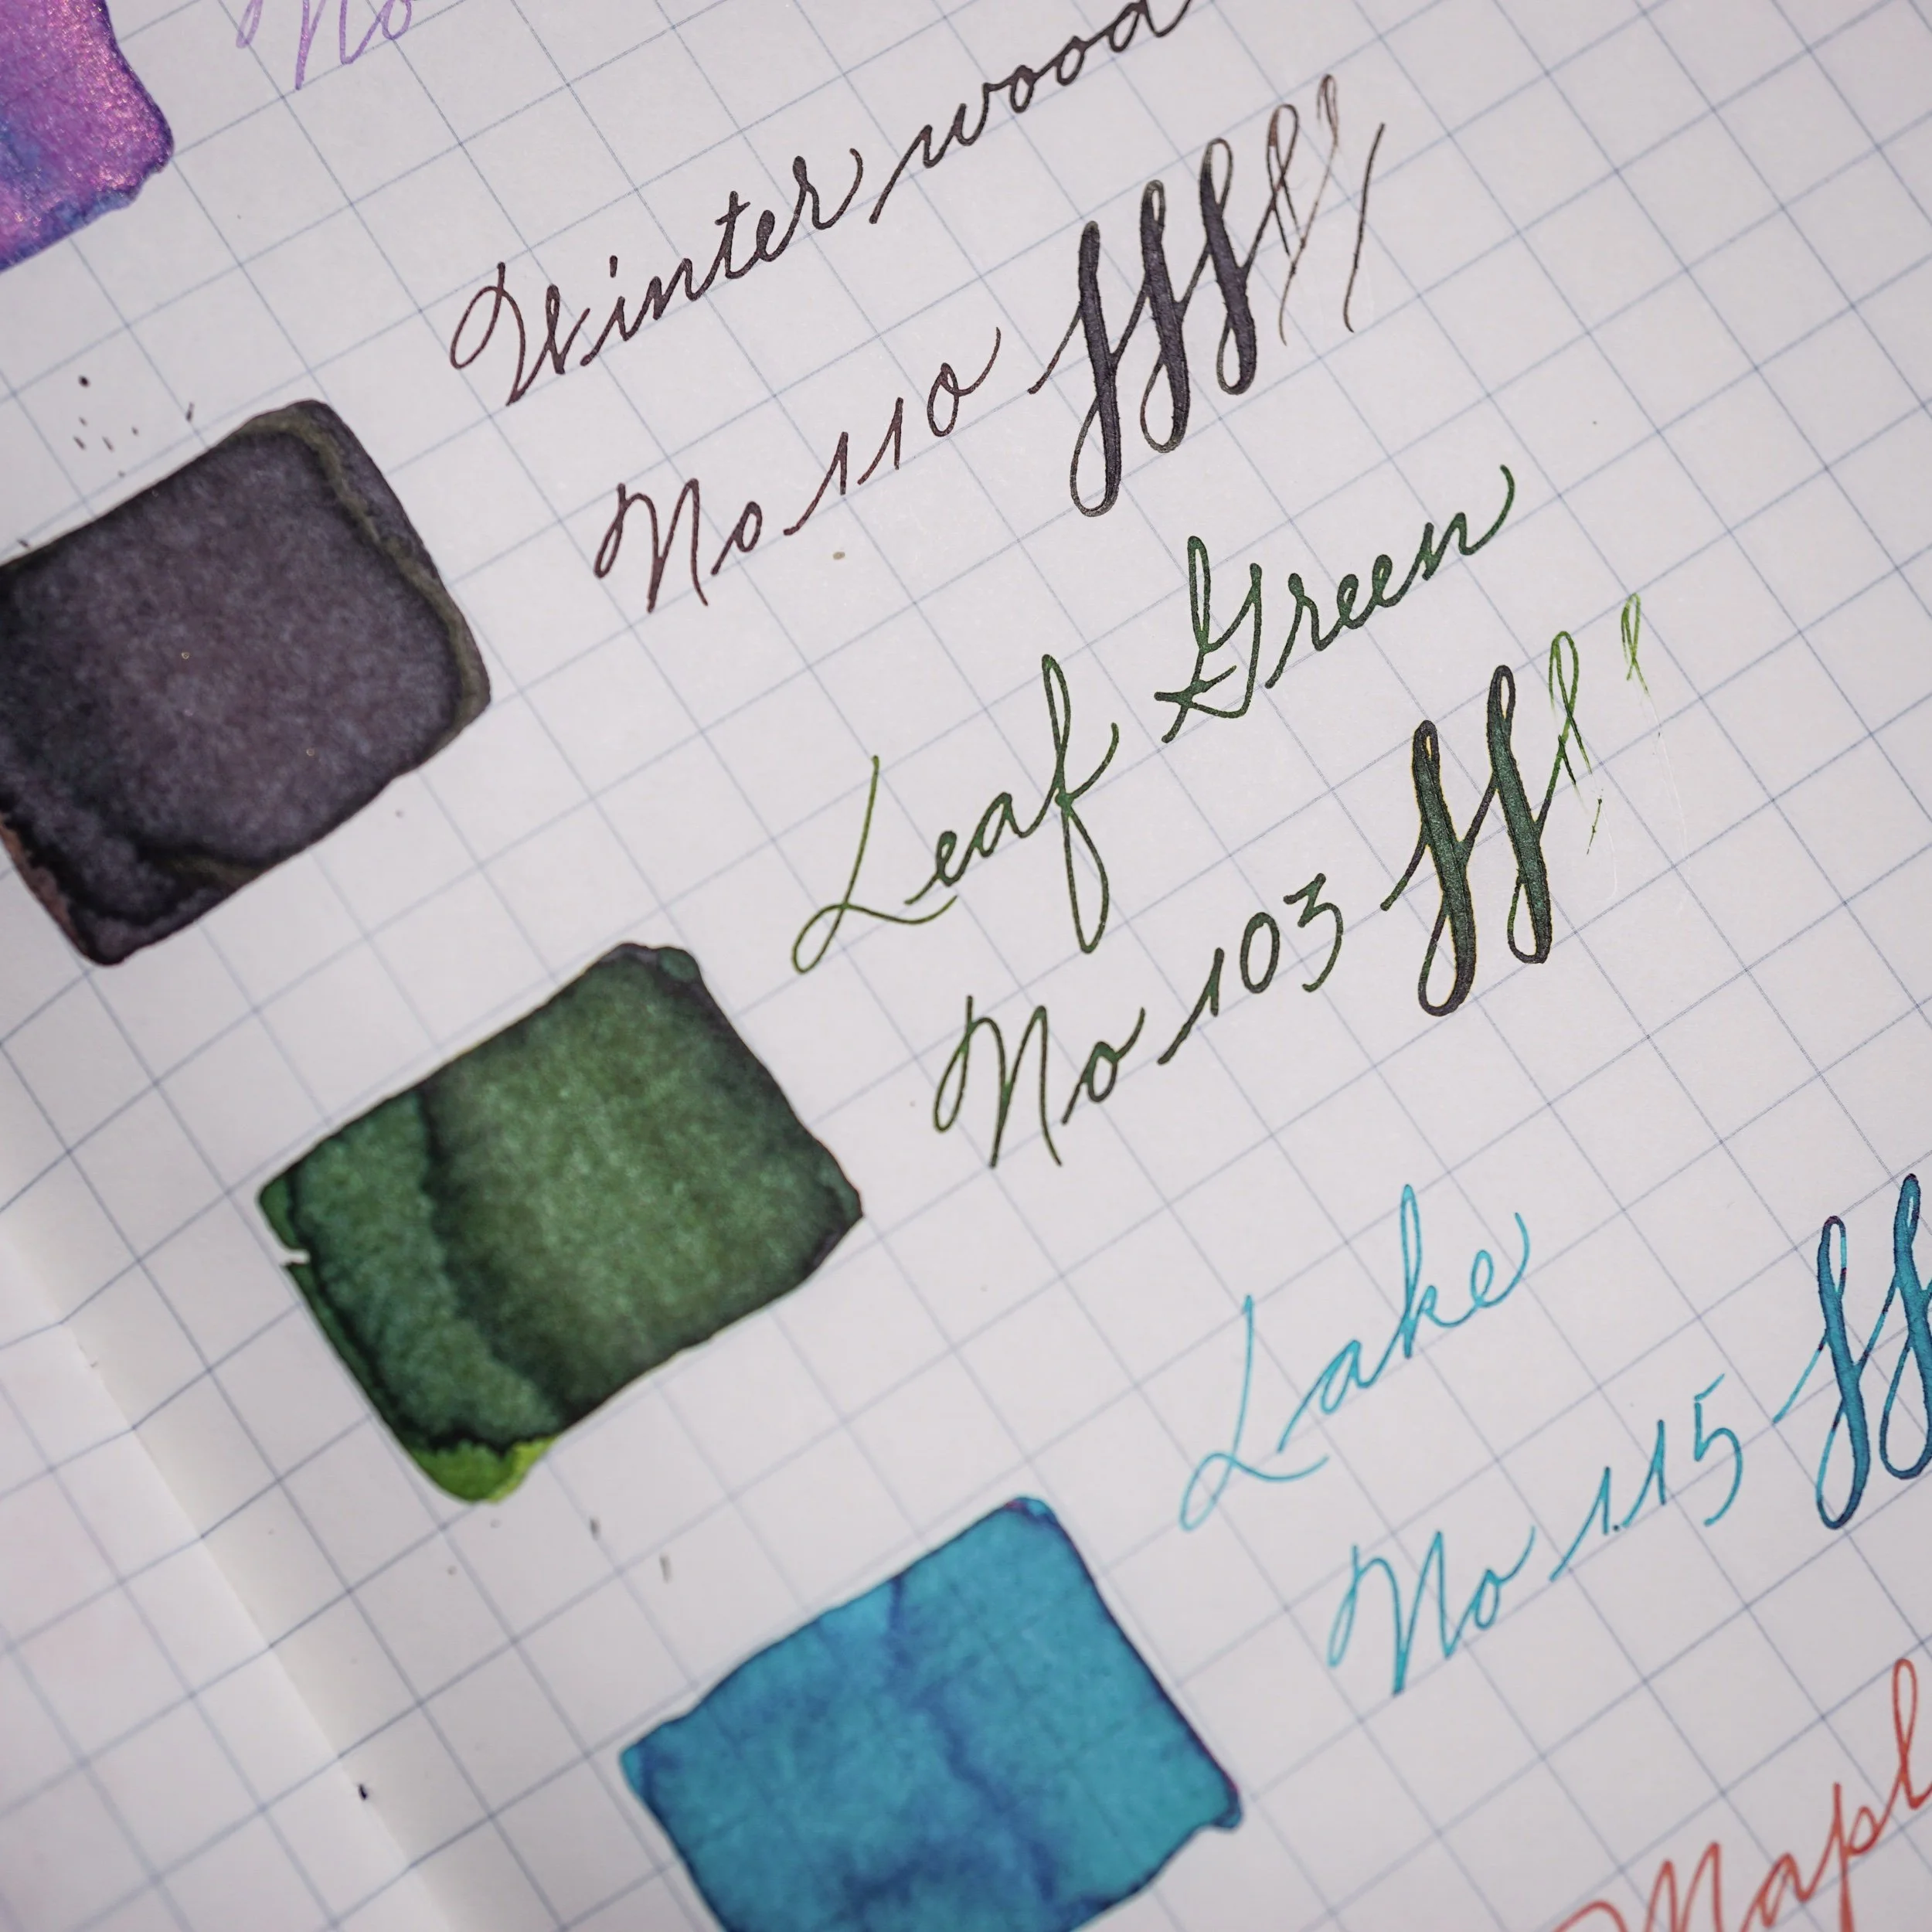 No
Winter wood
No 110 fffll/
Leaf Green
No 103 ffll
Lake
No 115 ff
Mapl